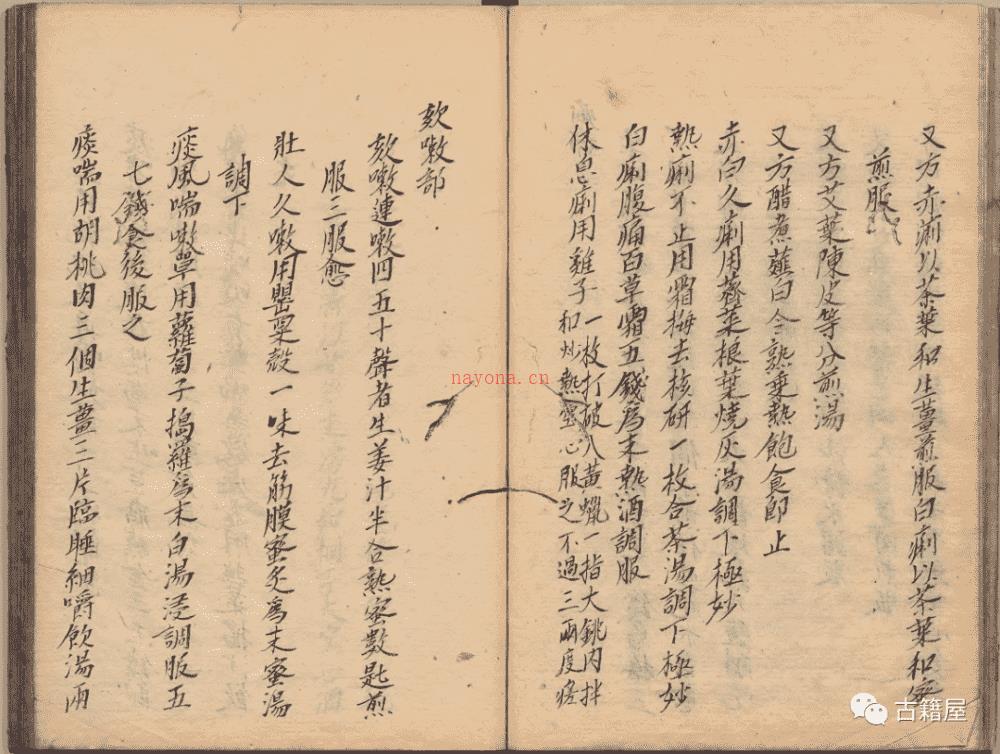 又方赤痢以茶葉和生薑煎服白痢以茶葉和蜜
煎服
又方艾葉陳皮等分煎湯
又方醋煮薤白令熟乗熱飽食即止
赤白久痢用薺菜根葉燒灰湯調下極妙
熱痢不止用霜梅去核研一枚合茶湯調下極妙
白痢腹痛百草霜五錢爲末熱酒調服
休息痢用雞子一枚打破入黃蠟一指大銚内拌
和炒熱空心服之不過三兩度瘥
欬嗽部
欬嗽連嗽四五十聲者生姜汁半合熟蜜數匙煎
服三服愈
壯人久嗽用罌粟殼一味去筋膜蜜炙爲末蜜湯
調下
痰風喘嗽單用蘿蔔子搗羅爲末白湯浸調服五
七錢食後服之
痰喘用胡桃肉三個生薑三片臨睡細嚼飲湯兩
nayona.cn
古籍屋